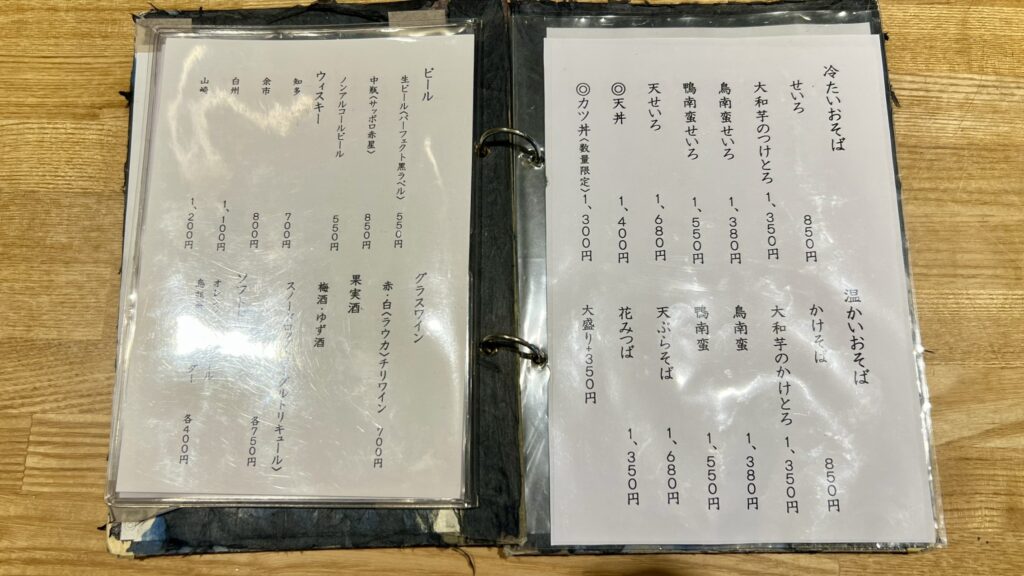 冷たいおそば
せいろ 850円
大和芋のつけとろ 1、350円
鳥南蛮せいろ 1、380円
鴨南蛮せいろ 1、550円
天せいろ 1、680円
◎天丼 1、400円
◎カツ丼〈数量限定〉 1、300円
温かいおそば
かけそば 850円
大和芋のかけとろ 1、350円
鳥南蛮 1、380円
鴨南蛮 1、550円
天ぷらそば 1、680円
花みつば 1、350円
大盛り+350円
ビール
生ビール〈パーフェクト黒ラベル〉 550円
中瓶〈サッポロ赤星〉 850円
ノンアルコールビール 550円
ウィスキー
知多 700円
余市 800円
白州 1、100円
山崎 1、200円
グラスワイン
赤・白〈ラウカ〉チリワイン 700円
果実酒
梅酒・ゆず酒
リキュール〉 各750円
ソフト
各400円